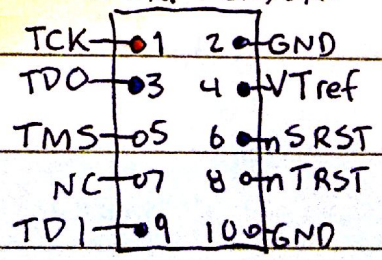 TCK 1 2 GND
TDO 3 4 VTref
TMS 5 6 nSRST
NC 7 8 nTRST
TDI 9 10 GND